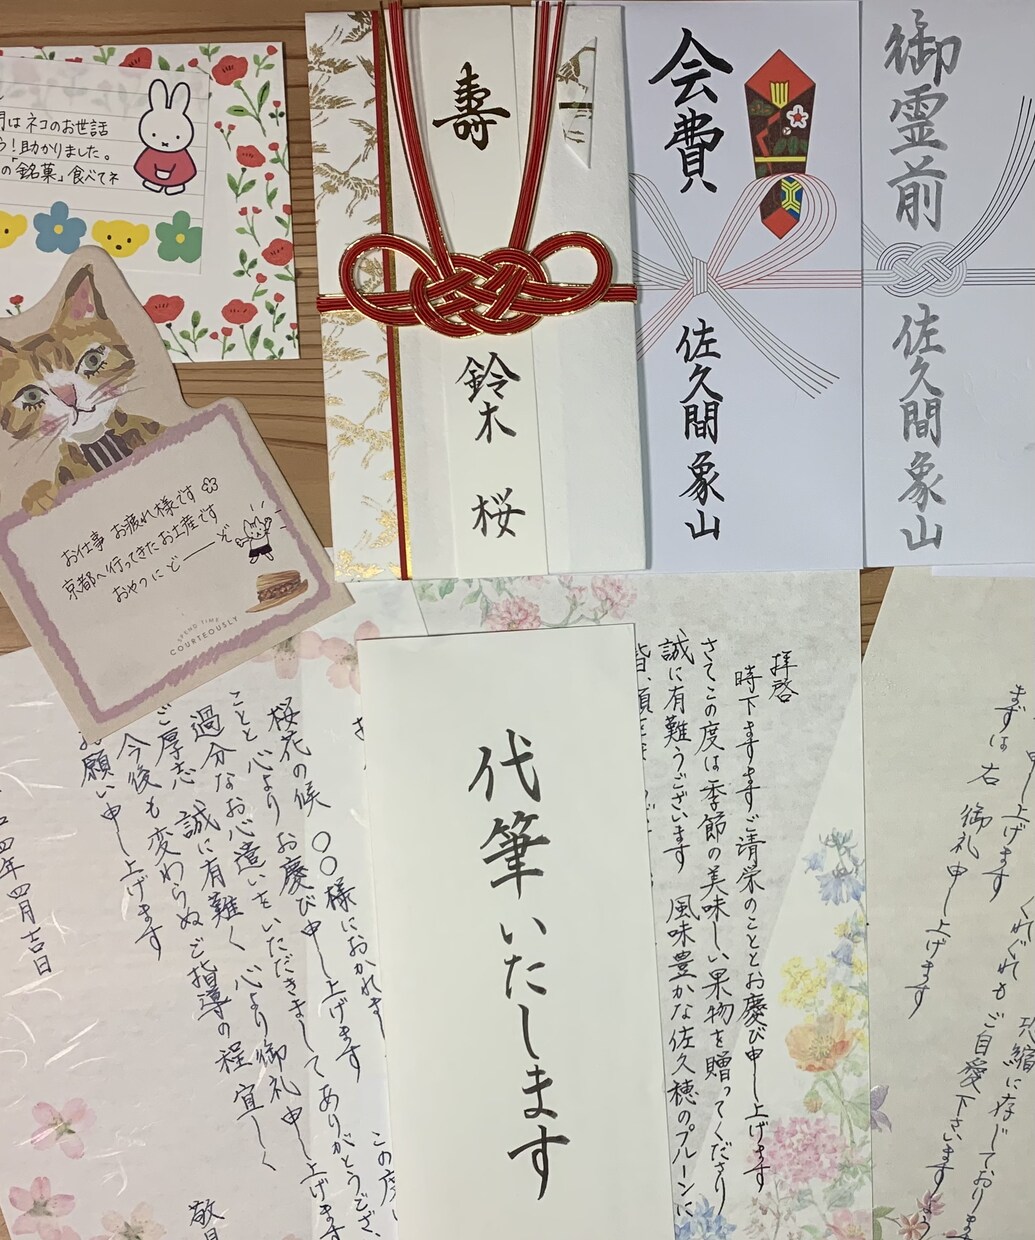 月はネコのお世話
う！助かりました。
の「銘菓」食べてネ
お仕事 お疲れ様です
京都へ行ってきたお土産です
おやつにどーーぞ
SPEND TIME
COURTEOUSLY
寿
鈴木 桜
会費
佐久間象山
御霊前
佐久間象山
代筆いたします
拝啓
時下ますますご清栄のこととお慶び申し上げます
さてこの度は季節の美味しい果物を贈ってくださり
誠に有難うございます 風味豊かな佐久穂のプルーンに
桜花の候 〇〇様におかれまし
ことと心よりお慶び申し上げます
過分なお心遣いをいただきましてありがとうござ
ご厚志 誠に有難く 心より御礼申し上げます
今後も変わらぬご指導の程 宜しく
お願い申し上げます
四年四月吉日
敬具
この度
申し上げます くれぐれもご自愛下さいます
まずは右 御礼申し上げます